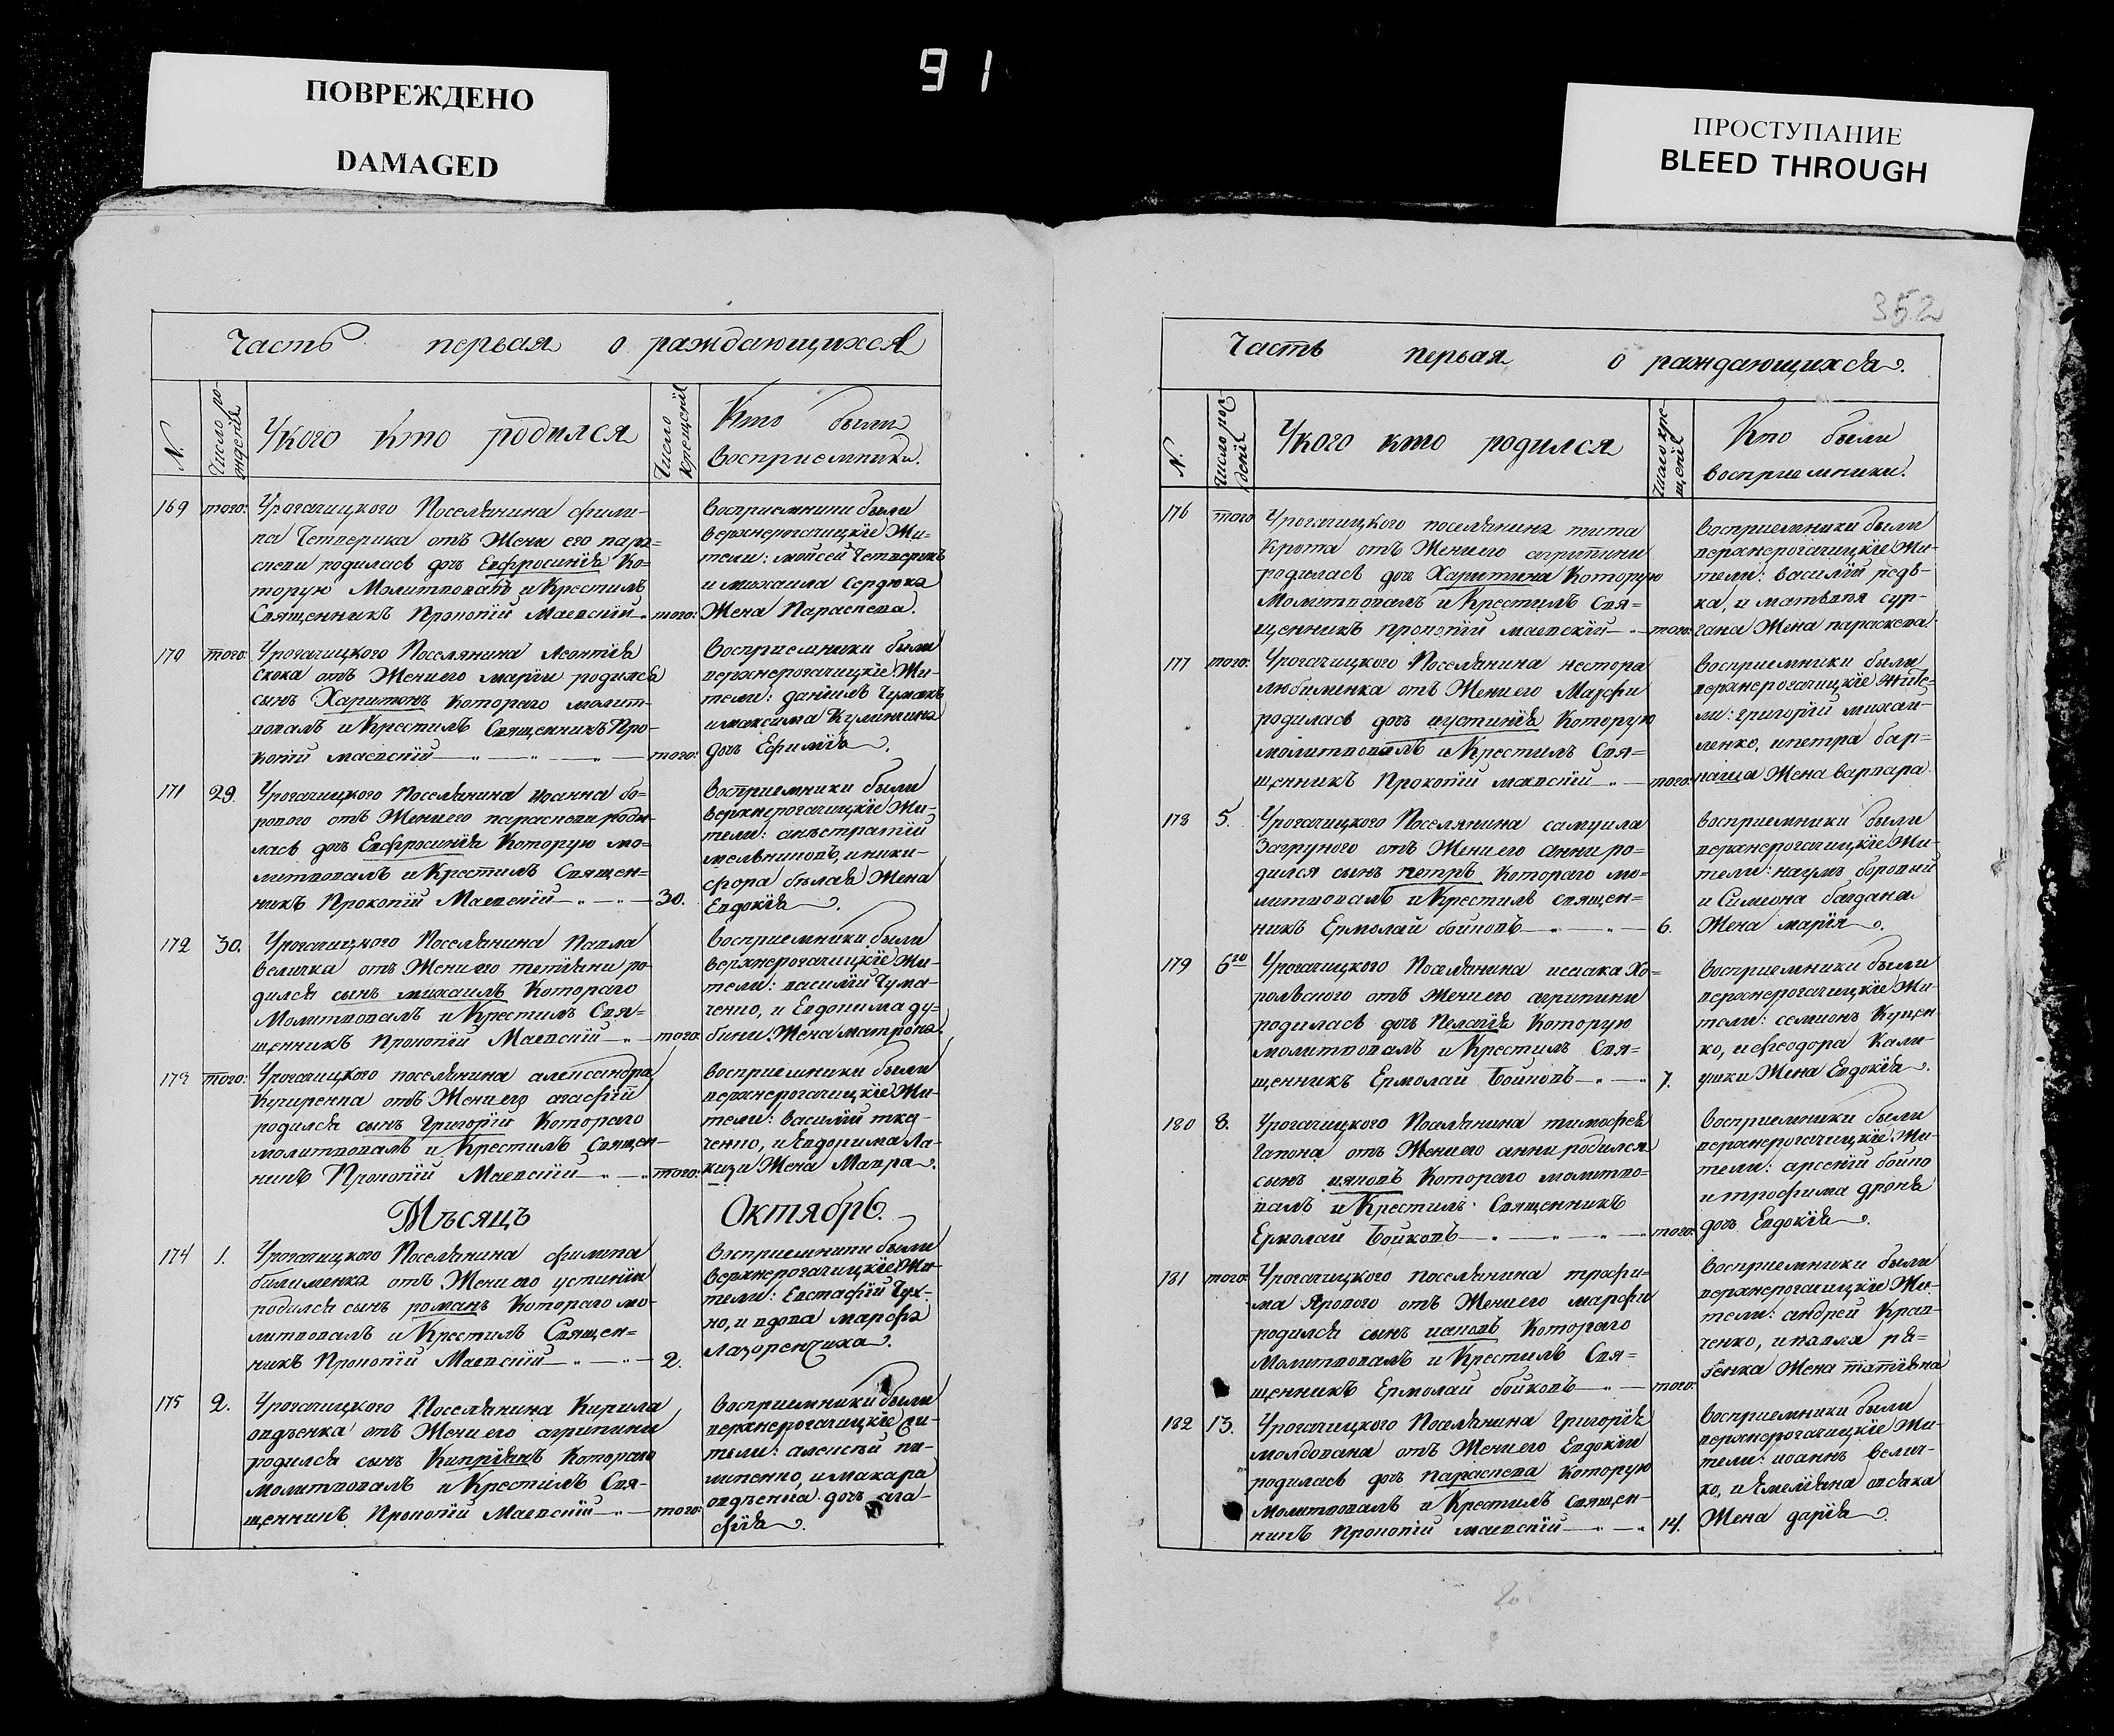 91
ПОВРЕЖДЕНО
DAMAGED
ПРОСТУПАНИЕ
BLEED THROUGH
Часть первая о раждающихся
N.
Число рождения
У кого кто родился
Число крещения
Кто были
восприемники.
169 того: У рогачицкого Поселянина фили-
па Четверика отъ Жени его парас=
ковеи родилась дочь Евфросиния Ко=
торую Молитвовалъ и Крестилъ
Священникъ Прокопий Маевский того:
восприемники были
верхнерогачицкие Жи-
тели: мойсей Четверикъ
и михаила Сердюка
Жена Параскева.
170 того: У рогачицкого Поселянина Леонтия
Скока отъ Жени его марии родился
сынъ Харитонъ которого молит-
вовалъ и Крестилъ Священникъ Про-
копий маевский того:
восприемники были
верхнерогачицкие Жи-
тели: даниилъ Чумакъ
и максима Кулинича
дочь Ефимия.
171 29. У рогачицкого Поселянина иоанна бо=
рового отъ Жени его параскеви роди-
лась дочь Евфросиния Которую мо=
литвовалъ и Крестилъ Священ=
никъ Прокопий Маевский 30.
восприемники были
верхнерогачицкие Жи-
тели:
мельниковъ, и ники-
фора Жена
Евдокия.
172 30. У рогачицкого Поселянина Павла
величка отъ Жени его тетияни ро-
дился сынъ михаилъ Которого
Молитвовалъ и Крестилъ Свя-
щенникъ Прокопий Маевский того:
восприемники были
верхнерогачицкие Жи-
тели: василий Чума-
ченко, и Евдокима ду-
бини Жена матрона.
173 того: У рогачицкого поселянина александра
Кучеренка отъ Жени его агафии
родился сынъ Григорий Которого
молитвовалъ и Крестилъ Священ-
никъ Прокопий Маевский того:
восприемники были
верхнерогачицкие Жи-
тели: василий тка-
ченко, и Ла-
Жена Мавра.
Мѣсяцъ Октябрь.
174 1. У рогачицкого Поселянина филипа
билименка отъ Жени его устинии
родился сынъ романъ Которого мо-
литвовалъ и Крестилъ Священ=
никъ Прокопий Маевский 2.
восприемники были
верхнерогачицкие Жи-
тели: Евстафий Чух-
но, и вдова марфа
Лазоренчиха.
175 2. У рогачицкого Поселянина Кирила
овдѣенка отъ Жени его агрипини
родился сынъ Киприянъ Которого
молитвовалъ и Крестилъ Свя-
щенникъ Прокопий Маевский того:
восприемники были
верхнерогачицкие
тели: алексѣй пи-
липенко, и макара
овдѣенка дочь ага-
фия.
352
Часть первая о раждающихся.
N.
Число рождения
У кого кто родился
Число крещения
Кто были
восприемники.
176 того У рогачицкого поселянина тита
Крота отъ Жени его агрипини
родилась дочь Харитина Которую
Молитвовалъ и Крестилъ Свя=
щенникъ прокопий маевский того:
восприемники были
верхнерогачицкие Жи-
тели: василий редь-
ка, и матвѣя сур-
гана Жена параскева.
177 того: У рогачицкого Поселянина нестора
любименка отъ Жени его Марфи
родилась дочь иустиния Которую
молитвовалъ и Крестилъ Свя=
щенникъ Прокопий маевский того:
восприемники были
верхнерогачицкие Жите-
ли: григорий михай-
ленко, и петра бар-
Жена варвара.
178 5. У рогачицкого Поселянина самуила
Загруного отъ Жени его анни ро=
дился сынъ петръ Которого мо=
литвовалъ и Крестилъ священ=
никъ Ермолай бойковъ 6.
восприемники были
верхнерогачицкие Жи-
тели: наумъ боровый
и Симеона багдана
Жена мария.
179 6го У рогачицкого Поселянина исаака Хо=
рольского отъ Жени его агрипини
родилась дочь Пелагия Которую
молитвовалъ и Крестилъ Свя=
щенникъ Ермолай Бойковъ 7.
восприемники были
верхнерогачицкие Жи-
тели: семионъ Куцен
ко, и феодора Кали-
ушки Жена Евдокия.
180 8. У рогачицкого Поселянина тимофея
гапона отъ Жени его анни родился
сынъ ияковъ Которого молитво=
валъ и Крестилъ Священникъ
Ермолай Бойковъ того:
восприемники были
верхнерогачицкие Жи-
тели: арсений бойко
и трофима дроня
дочь Евдокия.
181 того: У рогачицкого поселянина трофи=
ма Ярового отъ Жени его марфи
родился сынъ иаковъ Которого
Молитвовалъ и Крестилъ Свя=
щенникъ Ермолай бойковъ того:
восприемники были
верхнерогачицкие Жи-
тели: андрей Крав-
ченко, и павла ря=
бенка Жена татияна
182 13. У рогачицкого Поселянина Григория
молдована отъ Жени его Евдокии
родилась дочь параскева Которую
Молитвовалъ и Крестилъ Священ-
никъ Прокопий маевский 14.
восприемники были
верхнерогачицкие Жи-
тели: иоаннъ велич-
ко, и Емелияна овсяка
Жена дария.